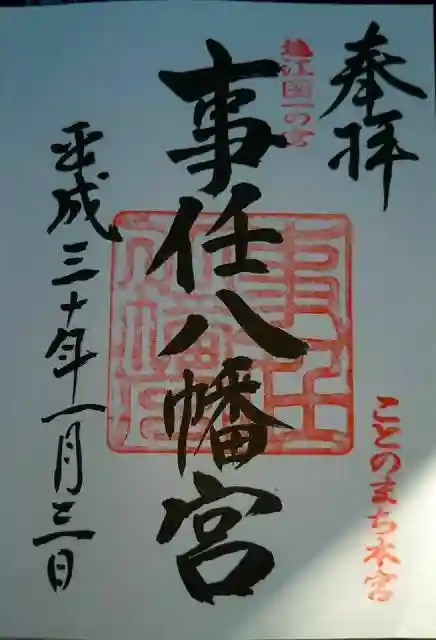 奉拝
遠江国一の宮
事任八幡宮
平成三十年一月三日
ことのまち本宮
事任八幡宮